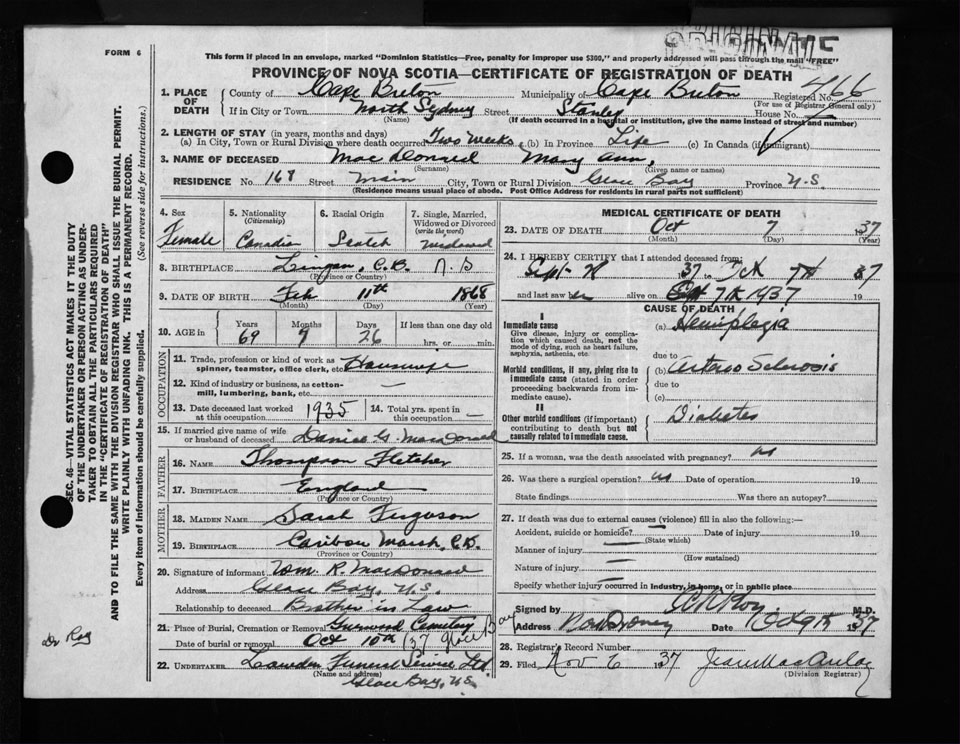 ORIGINALS
FORM 6
This form if placed in an envelope, marked "Dominion Statistics—Free, penalty for improper use $300," and properly addressed will pass through the mail "FREE"
PROVINCE OF NOVA SCOTIA—CERTIFICATE OF REGISTRATION OF DEATH
1. PLACE OF DEATH
County of Cape Breton Municipality of Cape Breton Registered No.
(For use of Registrar General only)
If in City or Town North Sydney Street Stanley House No.
(Name) (If death occurred in a hospital or institution, give the name instead of street and number)
2. LENGTH OF STAY (in years, months and days)
(a) In City, Town or Rural Division where death occurred Two Weeks (b) in Province Life (c) In Canada (if immigrant)
3. NAME OF DECEASED MacDonald Mary Ann,
(Surname) (Given name or names)
RESIDENCE No. 168 Street Main City, Town or Rural Division Glace Bay Province N.S.
(Residence means usual place of abode. Post Office Address for residents in rural parts not sufficient)
4. Sex Female
5. Nationality (Citizenship) Canadian
6. Racial Origin Scotch
7. Single, Married, Widowed or Divorced (write the word) Widowed
8. BIRTHPLACE Lingan, C.B. N.S
(Province or Country)
9. DATE OF BIRTH Feb 11th 1868
(Month) (Day) (Year)
10. AGE in Years Months Days If less than one day old
69 7 26 hrs. or min.
OCCUPATION
11. Trade, profession or kind of work as spinner, teamster, office clerk, etc. Housewife
12. Kind of industry or business, as cotton-mill, lumbering, bank, etc. —
13. Date deceased last worked at this occupation 1935
14. Total yrs. spent in this occupation —
15. If married give name of wife or husband of deceased Daniel G. MacDonald
FATHER
16. NAME Thompson Fletcher
17. BIRTHPLACE England
(Province or Country)
MOTHER
18. MAIDEN NAME Sarah Ferguson
19. BIRTHPLACE Caribou Marsh, C.B.
(Province or Country)
20. Signature of informant Wm. R. MacDonald
Address Glace Bay, N.S.
Relationship to deceased Brother in Law
21. Place of Burial, Cremation or Removal Greenwood Cemetery
Date of burial or removal Oct 10th 1937 Glace Bay
22. UNDERTAKER Lawden Funeral Service Ltd.
(Name and address)
Glace Bay, N.S.
MEDICAL CERTIFICATE OF DEATH
23. DATE OF DEATH Oct 7 1937
(Month) (Day) (Year)
24. I HEREBY CERTIFY that I attended deceased from:
Sept 37 to Oct 7th 37
and last saw her alive on 7th 1937 19
CAUSE OF DEATH
I
Immediate cause
Give disease, injury or complication which caused death, not the mode of dying, such as heart failure, asphyxia, asthenia, etc.
(a) Hemiplegia
due to
Morbid conditions, if any, giving rise to immediate cause (stated in order proceeding backwards from immediate cause).
(b) Arterio Sclerosis
due to
(c)
II
Other morbid conditions (if important) contributing to death but not causally related to immediate cause.
Diabetes
25. If a woman, was the death associated with pregnancy? no
26. Was there a surgical operation? no Date of operation 19
State findings Was there an autopsy?
27. If death was due to external causes (violence) fill in also the following:—
Accident, suicide or homicide? — Date of injury 19
(State which)
Manner of injury —
(How sustained)
Nature of injury —
Specify whether injury occurred in industry, in home, or in public place —
Signed by Roy M.D.
Address North Sydney Date 1937
28. Registrar's Record Number
29. Filed Nov 6 1937 Jean MacAulay
(Division Registrar)
SEC. 46—VITAL STATISTICS ACT MAKES IT THE DUTY OF THE UNDERTAKER OR PERSON ACTING AS UNDERTAKER TO OBTAIN ALL THE PARTICULARS REQUIRED IN THE "CERTIFICATE OF REGISTRATION OF DEATH" AND TO FILE THE SAME WITH THE DIVISION REGISTRAR WHO SHALL ISSUE THE BURIAL PERMIT.
WRITE PLAINLY WITH UNFADING INK. THIS IS A PERMANENT RECORD.
Every item of information should be carefully supplied. (See reverse side for instructions.)
Dr Roy